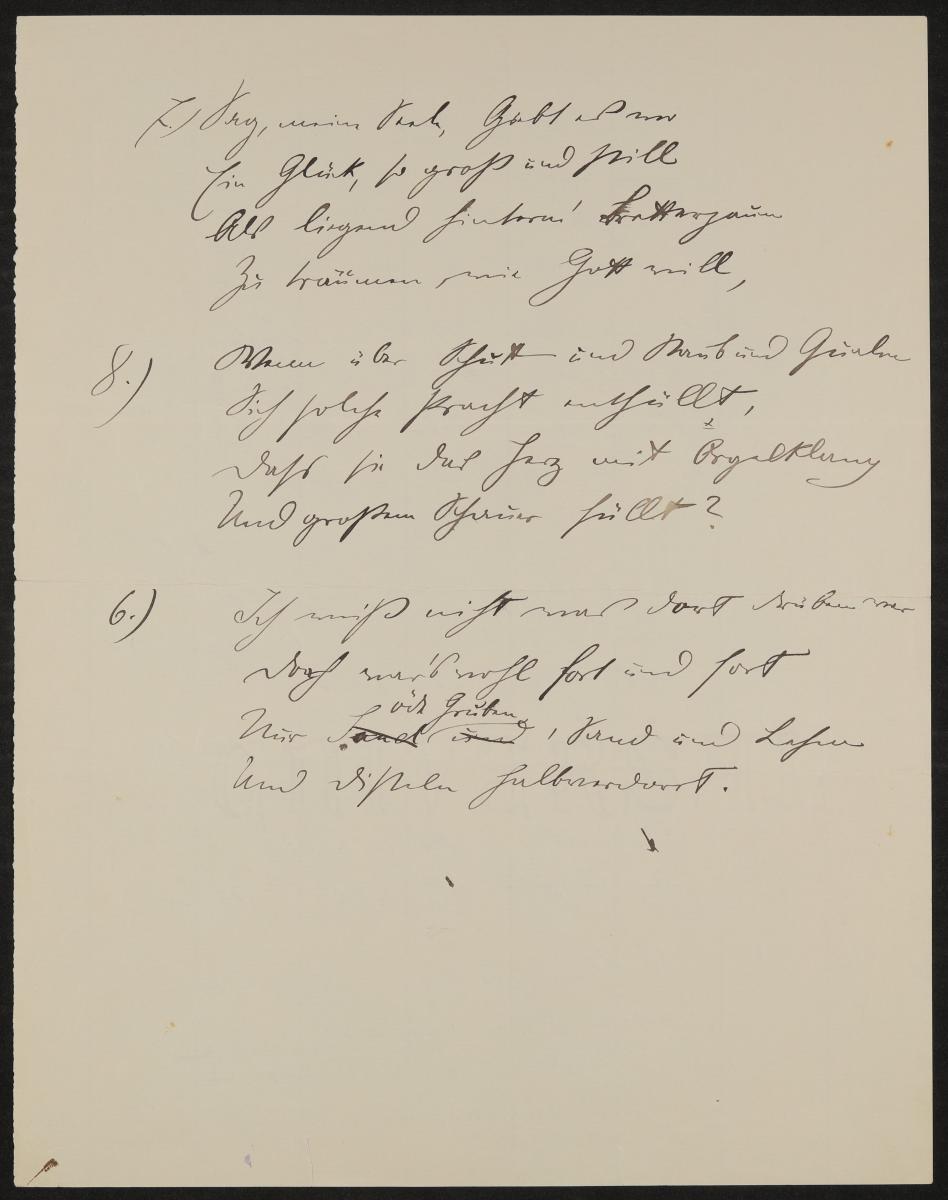 7.) Sag, meine Seele, Giebt es wo
Ein Glück, so groß und still
Als liegend hinterm' Bretterzaun
Zu träumen, wie Gott will,
8.) Wenn über Schutt und Staub und Qualm
Sich solche Pracht enthüllt,
Dass sie das Herz mit Orgelklang
Und großem Schauer füllt?
6.) Ich weiß nicht was dort drüben war
Doch war's wohl fort und fort
öde Gruben,
Nur Sand und, Sand und Lehm
Und Disteln halbverdorrt.